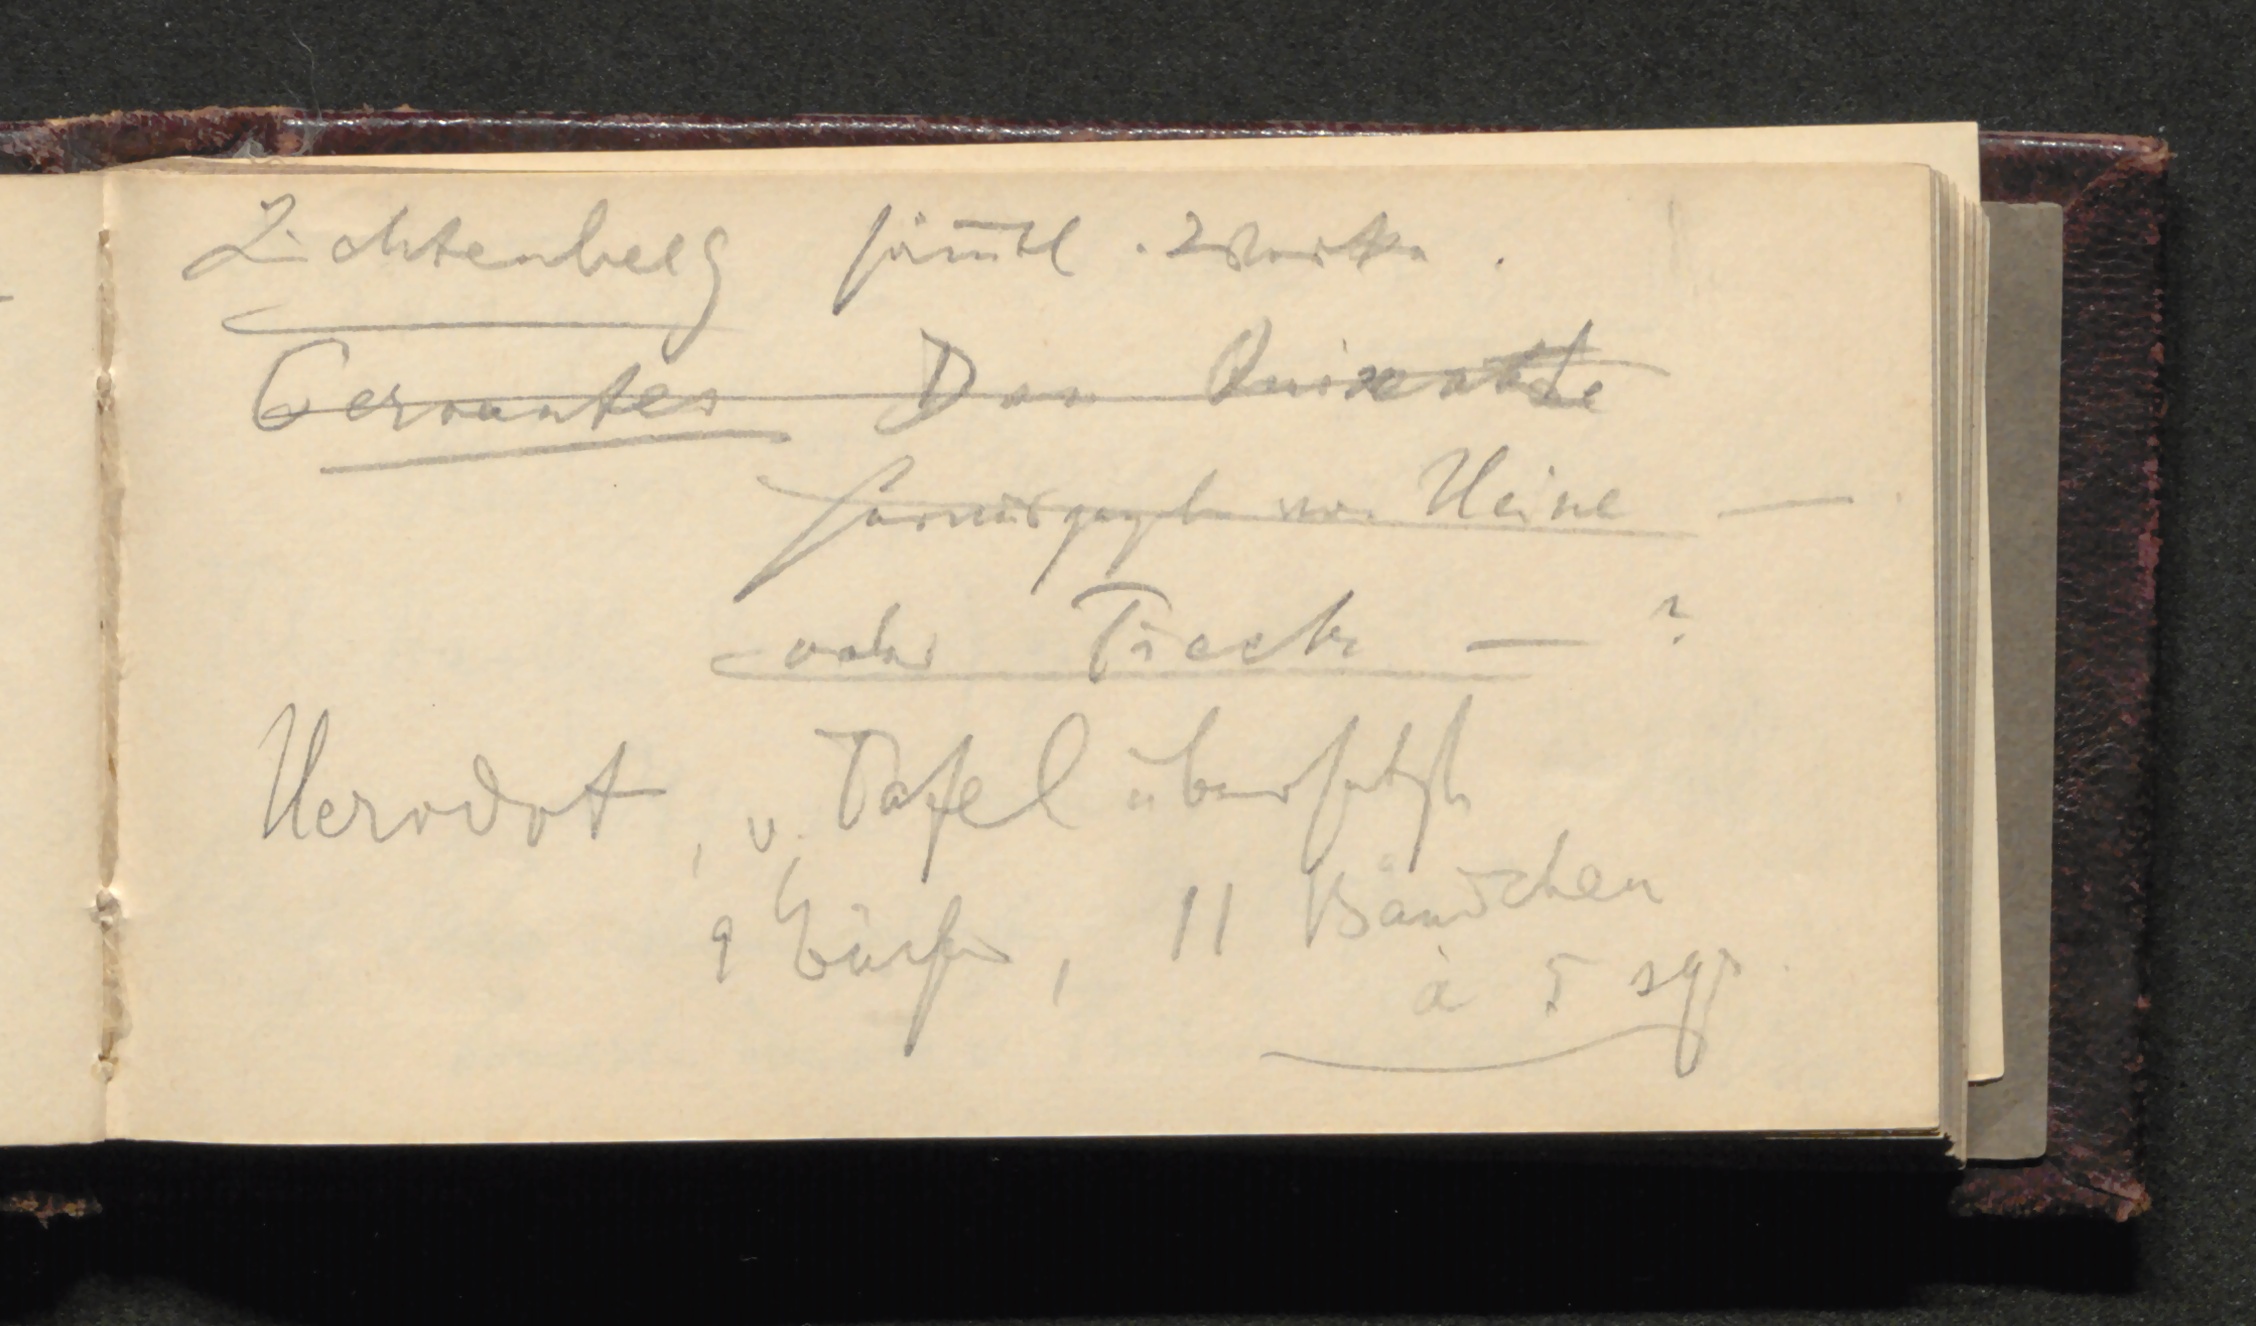 Lichtenberg säm̅tl. Werke.
Cervantes Don Quixotte
herausgegeb von Heine —
oder Tieck — ?
Herodot, v. Tafel übersetzt
9 Bücher, 11 Bändchen
à 5 sgr